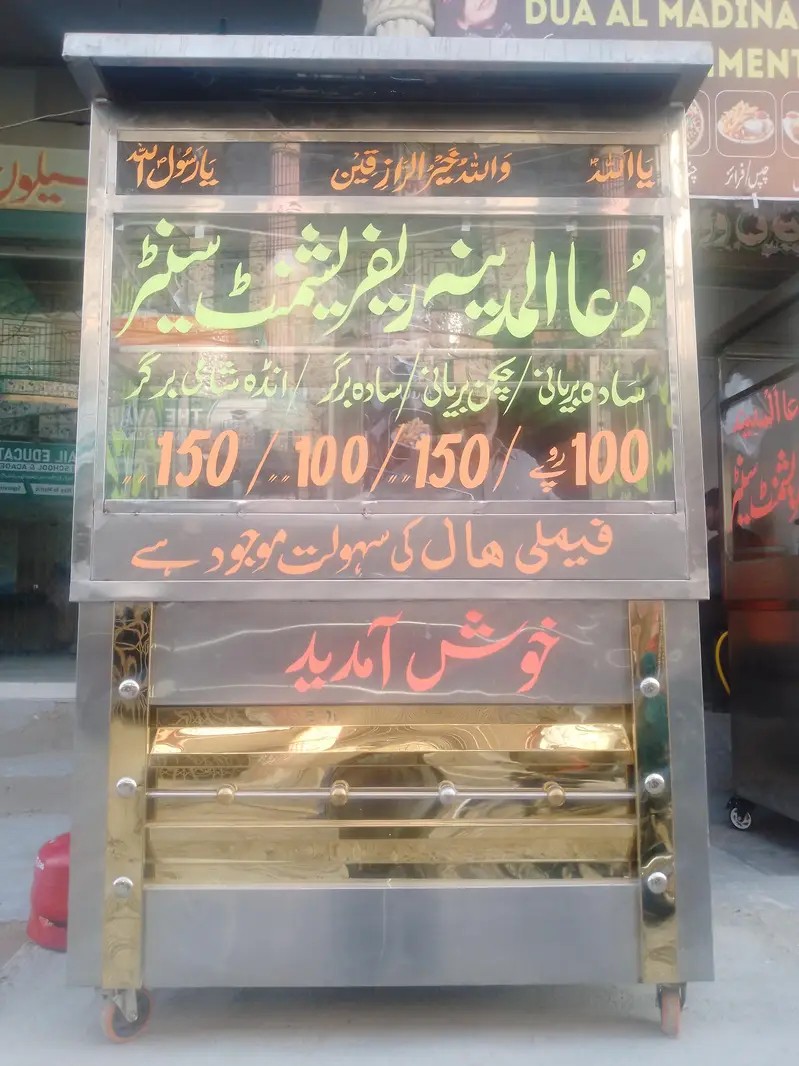 DUA AL MADINA
یا اللہ واللہ خیر الرازقین یا رسول اللہ
دُعا المدینہ ریفریشمنٹ سنٹر
سادہ بریانی / چکن بریانی / سادہ برگر / انڈہ شامی برگر
100 روپے / 150 / 100 / 150
فیملی ھال کی سہولت موجود ہے
خوش آمدید
چپس/فرائز